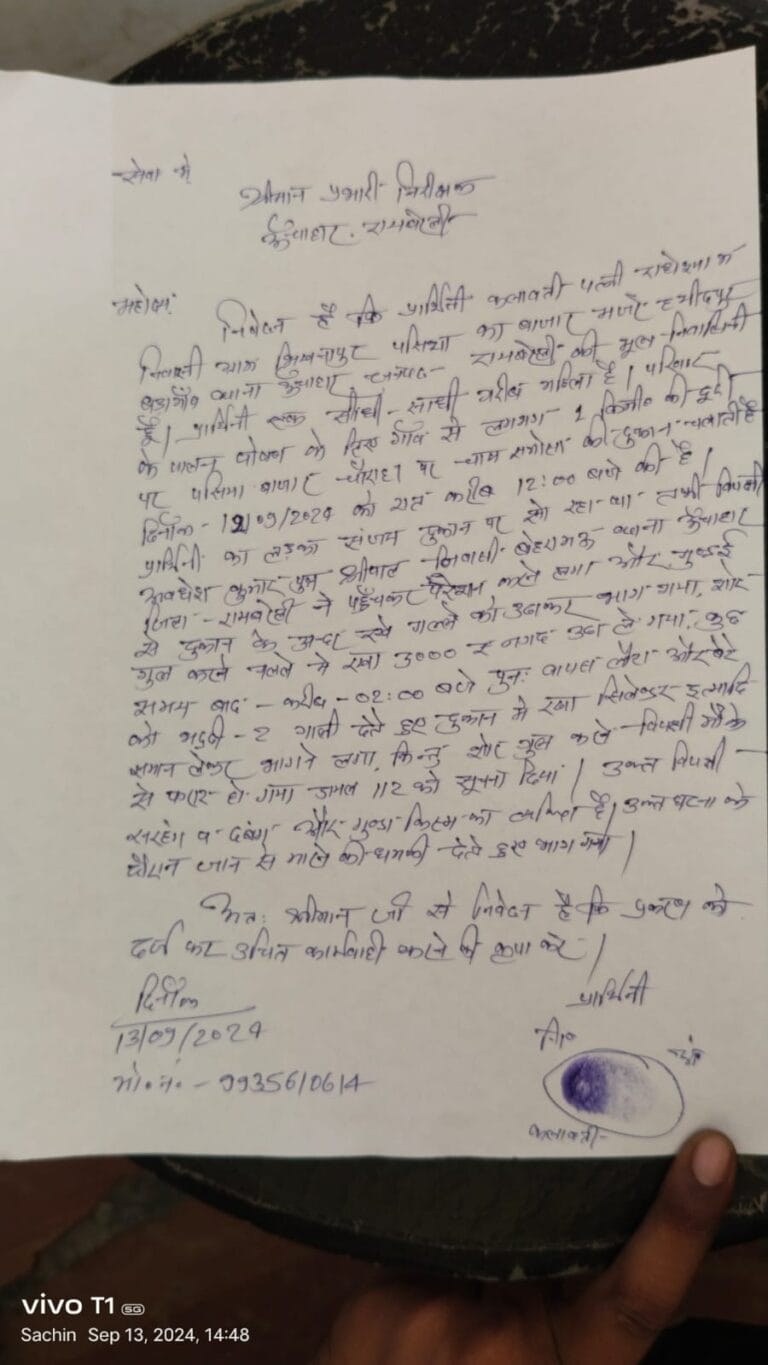 सेवा मे
श्रीमान प्रभारी निरीक्षक
ऊँचाहार, रायबरेली
महोदय,
निवेदन है कि प्रार्थिनी कलावती पत्नी राधेश्याम
निवासी ग्राम पसिया का बाजार मजरे हमीदपुर
बड़ागाँव थाना ऊँचाहार जनपद- रायबरेली की मूल निवासिनी
है। प्रार्थिनी एक सीधी-साधी गरीब महिला है। परिवार
के पालन पोषण के लिए गाँव से लगभग 2 किमी० की दूरी
पर पसिया बाजार चौराहा पर चाय समोसा की दुकान चलाती है
दिनाँक - 12/09/2024 को रात करीब 12:00 बजे की है।
प्रार्थिनी का लड़का संजय दुकान पर सो रहा था तभी विपक्षी
अवधेश कुमार पुत्र श्रीपाल निवासी थाना ऊँचाहार
जिला - रायबरेली ने पहुँचकर परेशान करने लगा और गुण्डई
से दुकान के अन्दर रखे गल्ले को उठाकर भाग गया, शोर
गुल करने गल्ले मे रखा 3000 रु नगद उठा ले गया, कुछ
समय बाद - करीब - 02:00 बजे पुनः वापस लौटा और बेटे
को भद्दी - 2 गाली देते हुए दुकान मे रखा सिलेण्डर इत्यादि
समान लेकर भागने लगा, किन्तु शोर गुल करने विपक्षी मौके
से फरार हो गया डायल 112 को सूचना दिया। उक्त विपक्षी
सरहंग व दबंग और गुण्डा किस्म का व्यक्ति है, उक्त घटना के
दौरान जान से मारने की धमकी देते हुए भाग गया।
अतः श्रीमान जी से निवेदन है कि प्रकरण को
दर्ज कर उचित कार्यवाही करने की कृपा करे।
दिनाँक
13/09/2024
मो० नं० - 9935610614
प्रार्थिनी
नि० अं०
कलावती
vivo T1 5G
Sachin Sep 13, 2024, 14:48